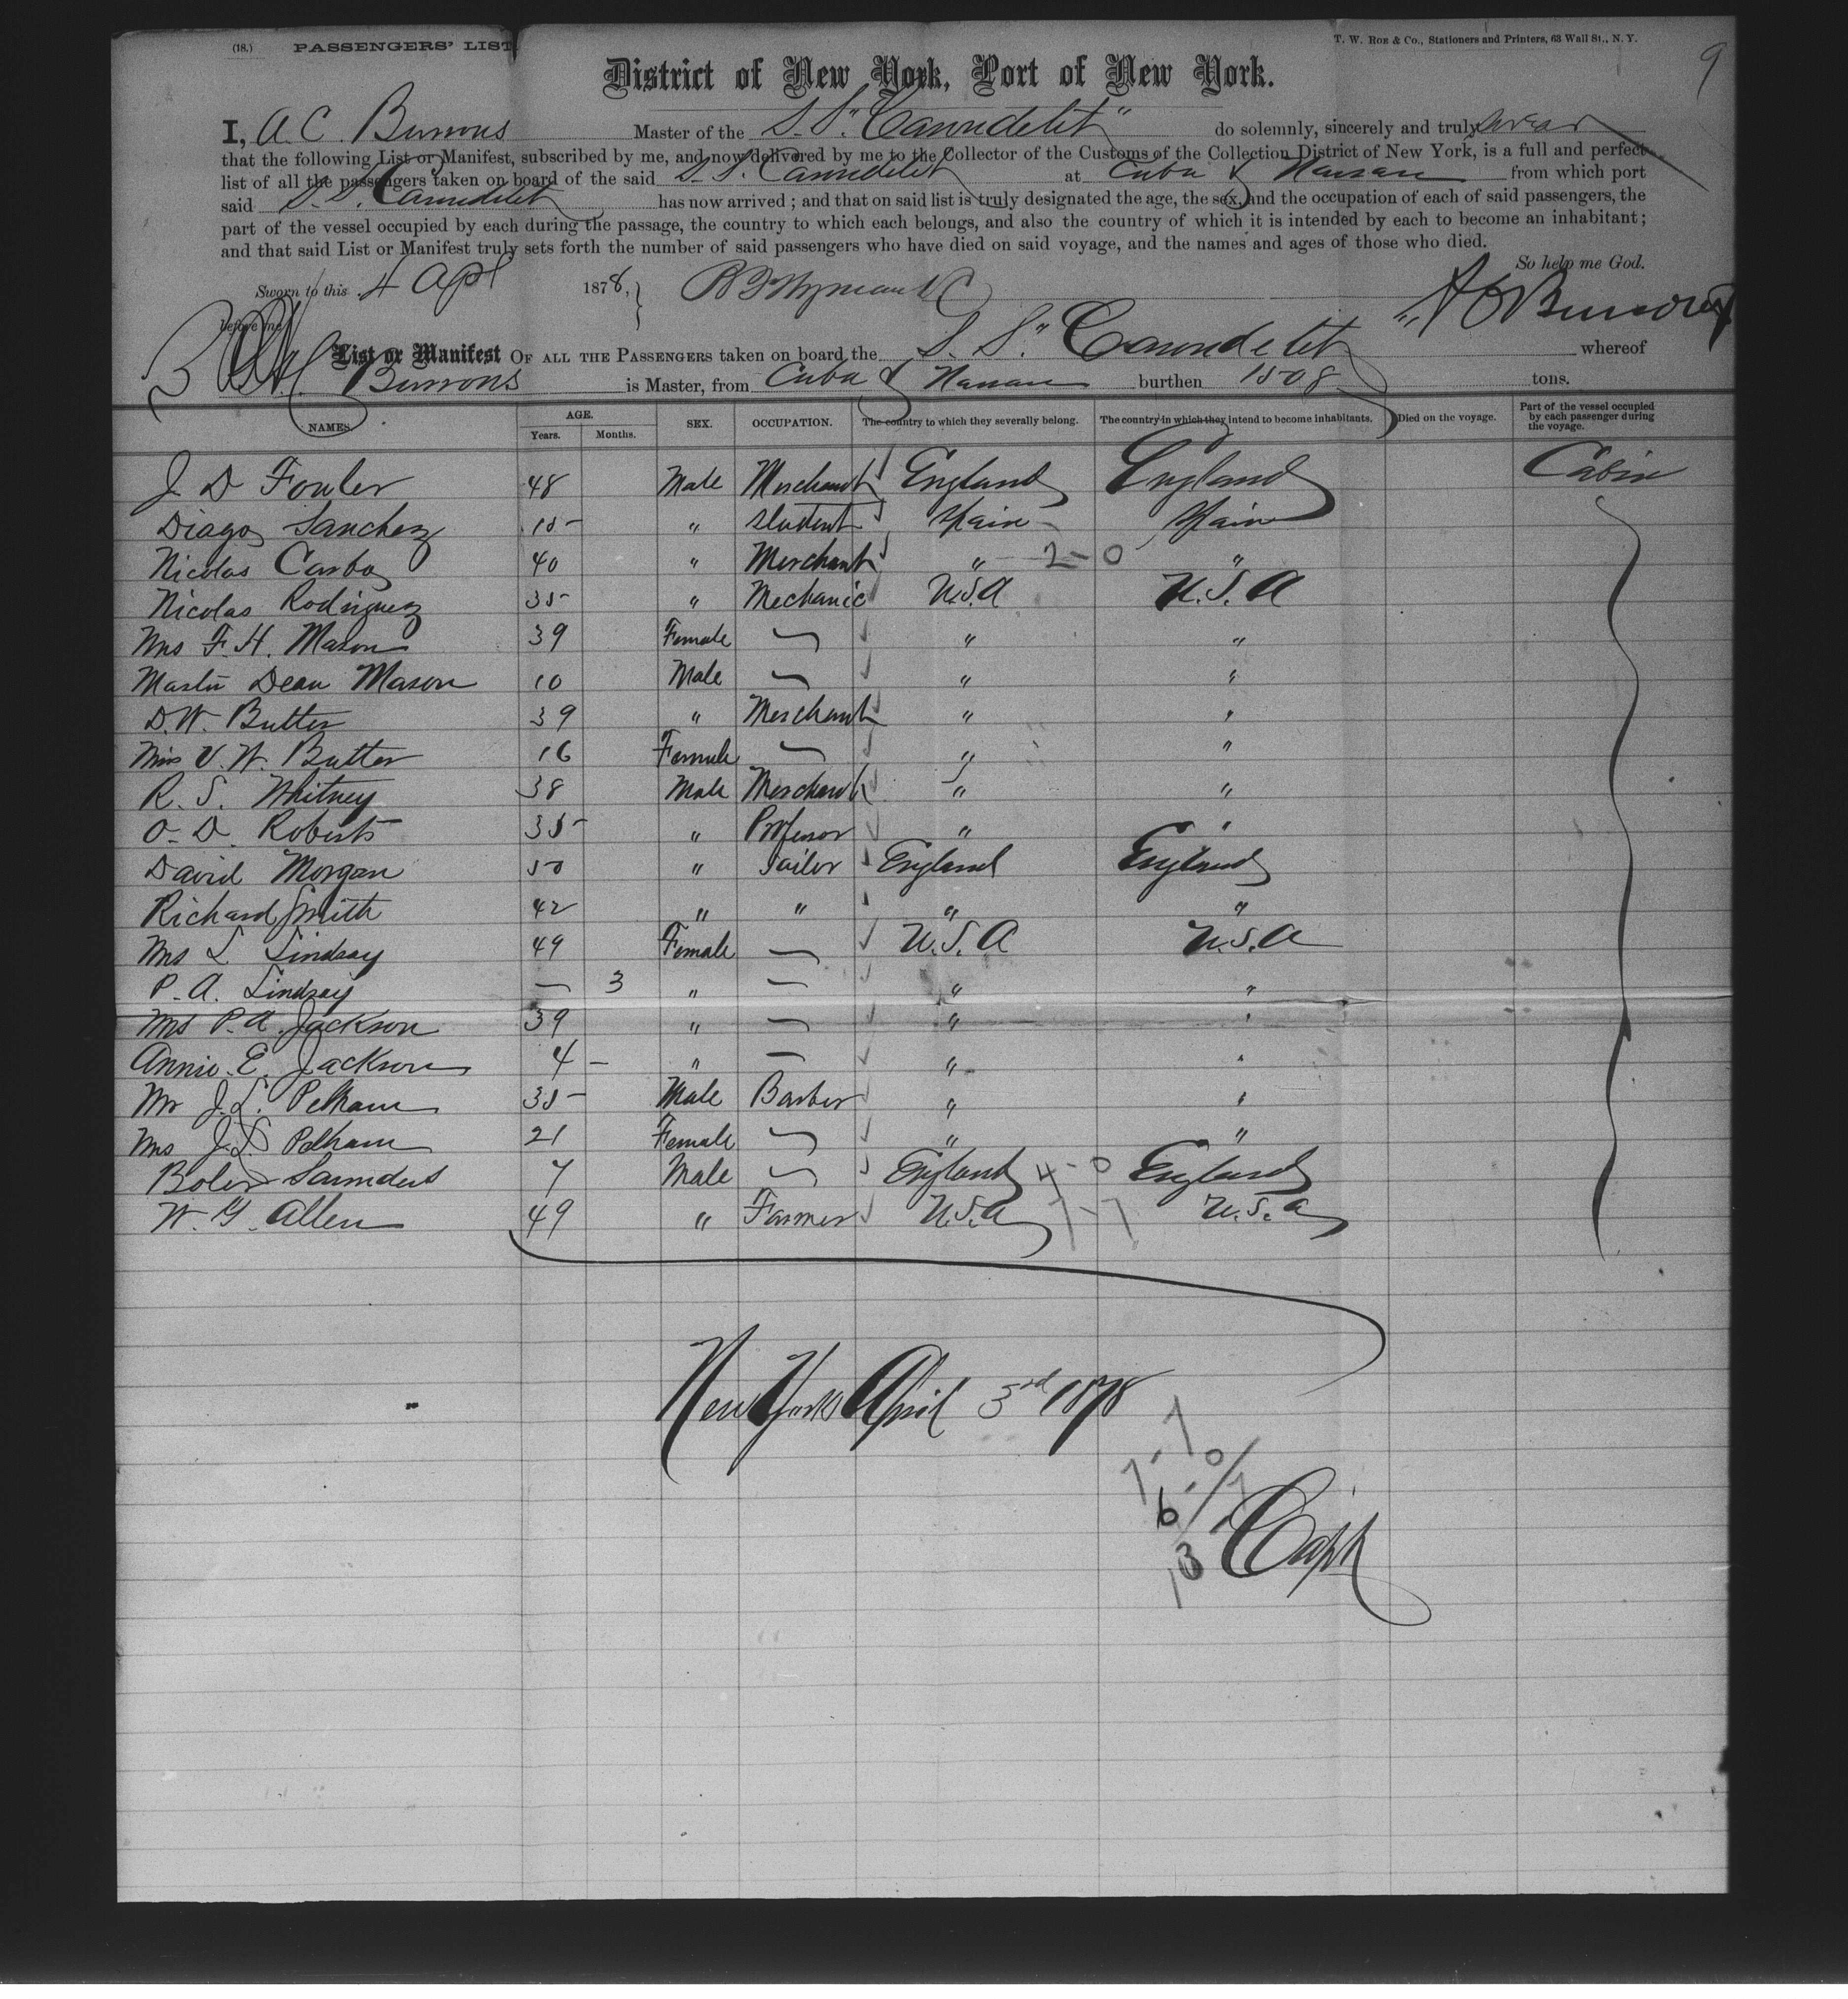 (18.) PASSENGERS' LIST
T. W. Roe & Co., Stationers and Printers, 63 Wall St., N. Y.
9
District of New York, Port of New York.
I, A. C. Burrows Master of the S. S. "Carondelet" do solemnly, sincerely and truly swear
that the following List or Manifest, subscribed by me, and now delivered by me to the Collector of the Customs of the Collection District of New York, is a full and perfect
list of all the passengers taken on board of the said S. S. Carondelet at Cuba & Nassau from which port
said S. S. Carondelet has now arrived; and that on said list is truly designated the age, the sex, and the occupation of each of said passengers, the
part of the vessel occupied by each during the passage, the country to which each belongs, and also the country of which it is intended by each to become an inhabitant;
and that said List or Manifest truly sets forth the number of said passengers who have died on said voyage, and the names and ages of those who died.
So help me God.
Sworn to this 4 Apl 1878,
before me
A C Burrows
List or Manifest OF ALL THE PASSENGERS taken on board the S. S. "Carondelet whereof
Burrows is Master, from Cuba & Nassau burthen 1508 tons.
NAMES. AGE. Years. Months. SEX. OCCUPATION. The country to which they severally belong. The country in which they intend to become inhabitants. Died on the voyage. Part of the vessel occupied by each passenger during the voyage.
J. D Fowler 48 Male Merchant England England Cabin
Diago Sanchez 15 " Student Spain Spain
Nicolas Carbo 40 " Merchant " 2-0 "
Nicolas Rodriguez 35 " Mechanic U.S.A U.S.A
Mrs F. H. Mason 39 Female — " "
Master Dean Mason 10 Male — " "
D. W. Butter 39 " Merchant " "
Miss V. W. Butter 16 Female — " "
R. S. Whitney 38 Male Merchant " "
O. D. Roberts 35 " Professor " "
David Morgan 50 " Sailor England England
Richard Smith 42 " " " "
Mrs L Lindsay 49 Female — U.S.A U.S.A
P. A. Lindsay — 3 " — " "
Mrs P. A. Jackson 39 " — " "
Annie E. Jackson 4 — " — " "
Mr J. L. Pelham 35 Male Barber " "
Mrs J. L. Pelham 21 Female — " "
Saunders 7 Male — England 4-0 England
W. G. Allen 49 " Farmer U.S.A 7-7 U.S.A
New York April 3rd 1878
7-7
6-0
13
Capt